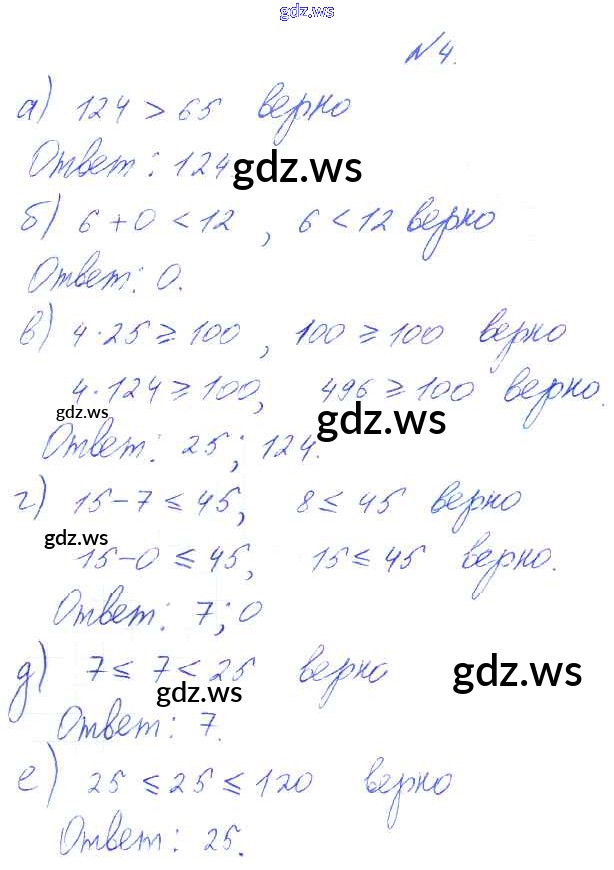 gdz.ws
№4.
а) 124 > 65 верно
Ответ: 124
gdz.ws
б) 6+0 < 12, 6 < 12 верно
Ответ: 0.
в) 4·25 ≥ 100, 100 ≥ 100 верно
4·124 ≥ 100, 496 ≥ 100 верно.
gdz.ws
gdz.ws
Ответ: 25; 124.
г) 15-7 ≤ 45, 8 ≤ 45 верно
gdz.ws
15-0 ≤ 45, 15 ≤ 45 верно.
Ответ: 7; 0
д) 7 ≤ 7 < 25 верно
gdz.ws
gdz.ws
Ответ: 7.
е) 25 ≤ 25 ≤ 120 верно
Ответ: 25.